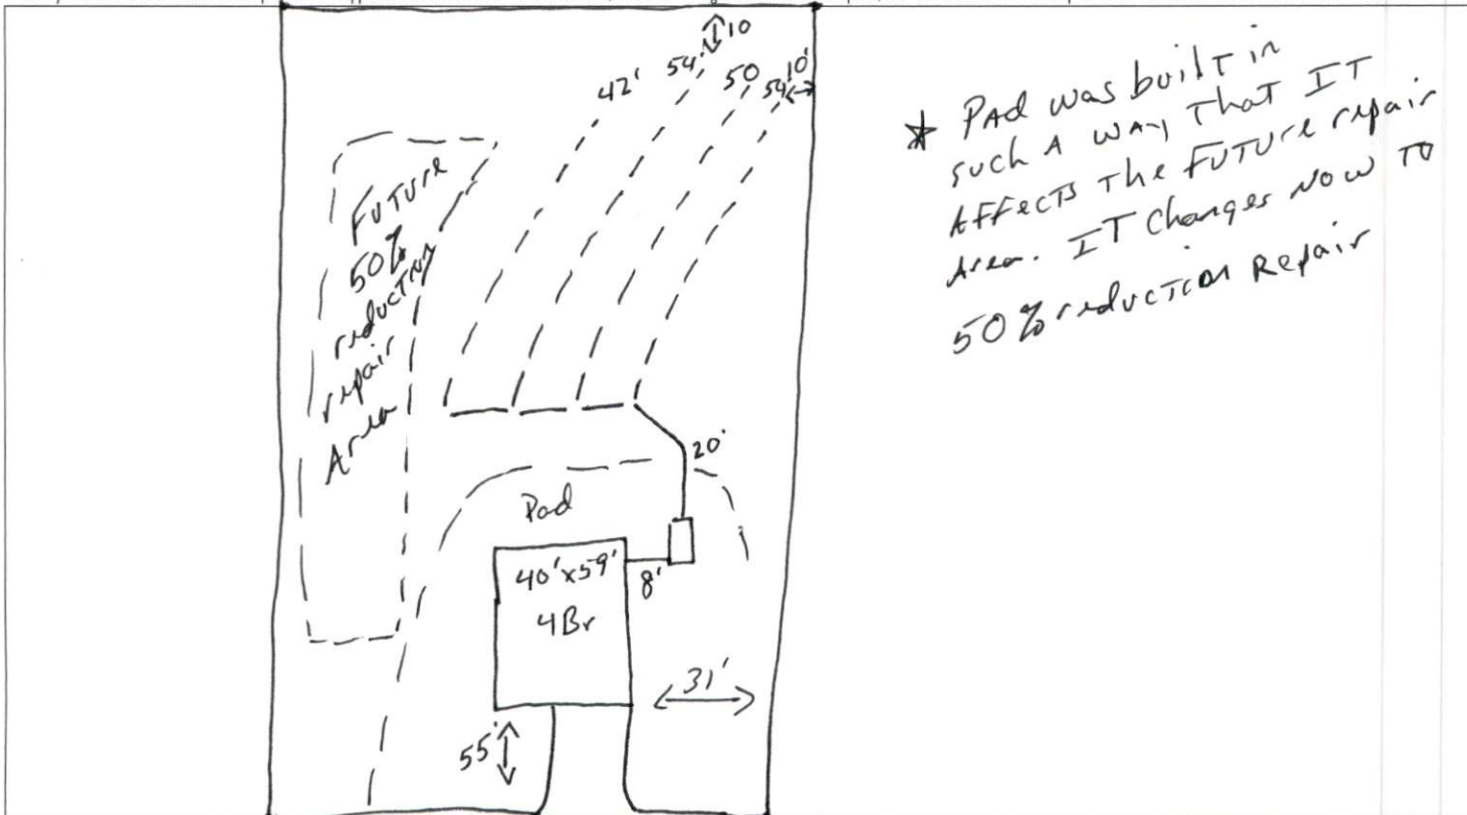 10
54'
42'
50
10'
54'
Future
50%
reduction
repair
Area
20'
Pad
40'x59'
4Br
8'
31'
55'
* PAd was built in
such A way That IT
Affects The Future repair
Area. IT Changes Now To
50% reduction Repair